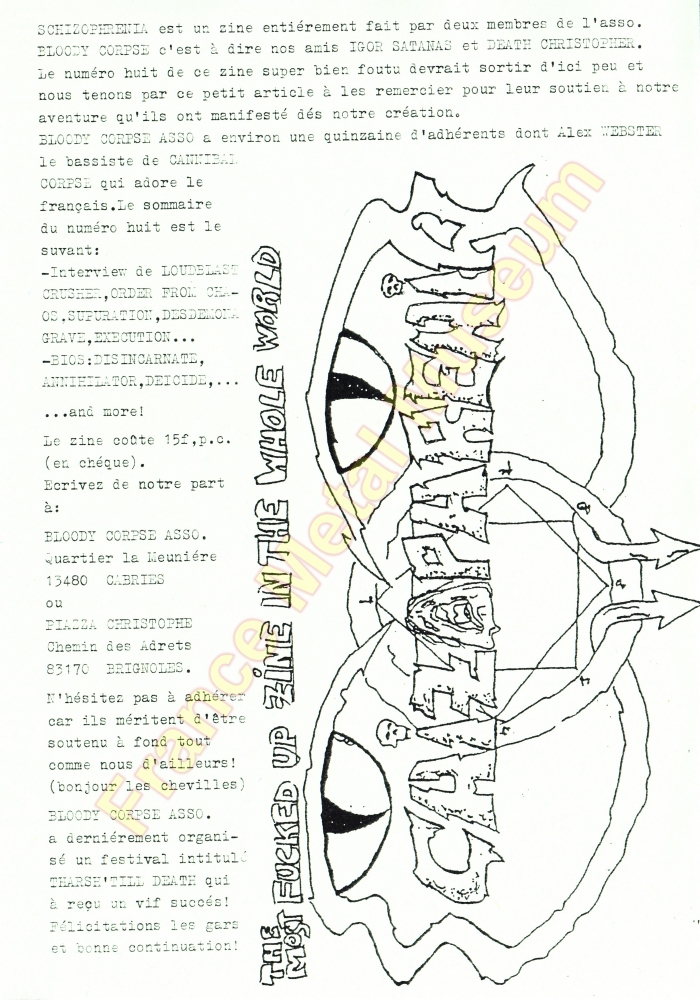 SCHIZOPHRENIA est un zine entiérement fait par deux membres de l'asso.
BLOODY CORPSE c'est à dire nos amis IGOR SATANAS et DEATH CHRISTOPHER.
Le numéro huit de ce zine super bien foutu devrait sortir d'ici peu et
nous tenons par ce petit article à les remercier pour leur soutien à notre
aventure qu'ils ont manifesté dés notre création.
BLOODY CORPSE ASSO a environ une quinzaine d'adhérents dont Alex WEBSTER
le bassiste de CANNIBAL
CORPSE qui adore le
français.Le sommaire
du numéro huit est le
suvant:
-Interview de LOUDBLAST
CRUSHER,ORDER FROM CHA-
OS,SUPURATION,DESDEMONA
GRAVE,EXECUTION...
-BIOS:DISINCARNATE,
ANNIHILATOR,DEICIDE,...
...and more!
Le zine coûte 15f,p.c.
(en chéque).
Ecrivez de notre part
à:
BLOODY CORPSE ASSO.
Quartier la Meuniére
13480 CABRIES
ou
PIAZZA CHRISTOPHE
Chemin des Adrets
83170 BRIGNOLES.
N'hésitez pas à adhérer
car ils méritent d'être
soutenu à fond tout
comme nous d'ailleurs!
(bonjour les chevilles)
BLOODY CORPSE ASSO.
a derniérement organi-
sé un festival intitulé
THARSH'TILL DEATH qui
à reçu un vif succés!
Félicitations les gars
et bonne continuation!
THE
MOST FUCKED UP ZiNE IN THE WHOLE WORLD
SCHiZOPHRENiA
France Metal Museum